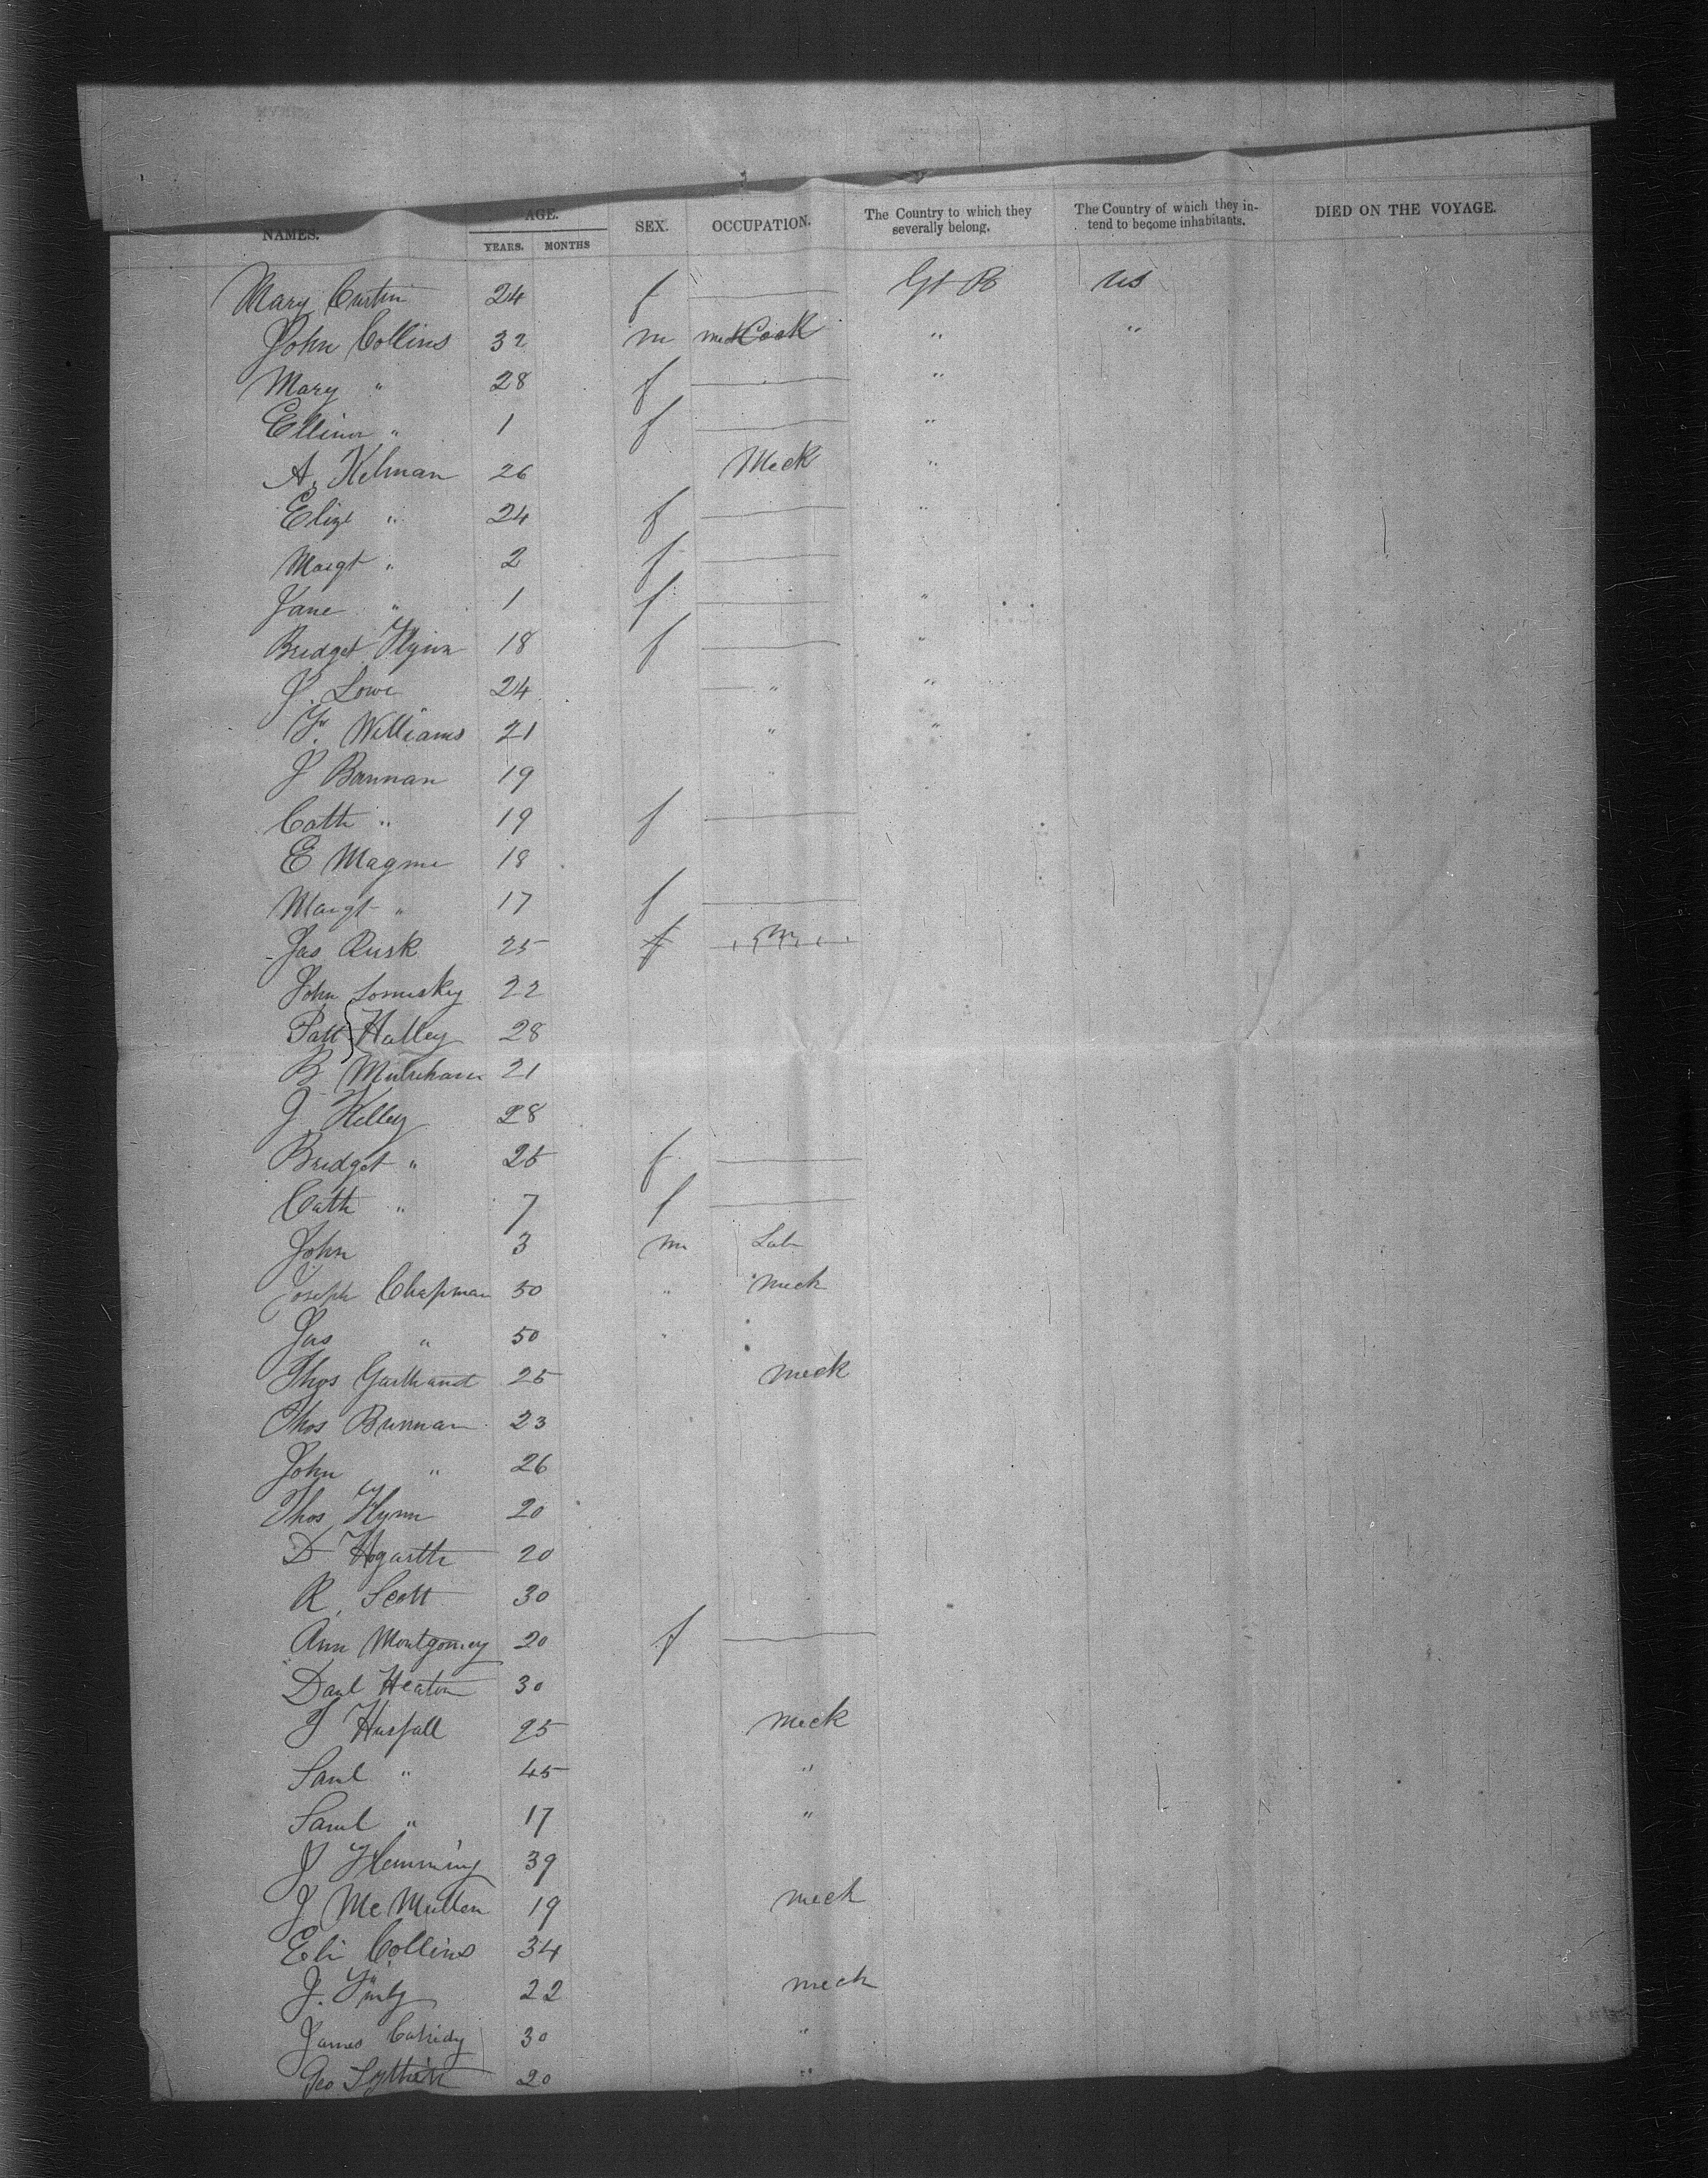 NAMES. AGE. YEARS. MONTHS SEX. OCCUPATION. The Country to which they severally belong. The Country of which they intend to become inhabitants. DIED ON THE VOYAGE.
Mary Curtin 24 f — Gt B US
John Collins 32 m Cook " "
Mary " 28 f — "
Ellinor " 1 f — "
A. Kelman 26 Meck "
Eliza " 24 f — "
Margt " 2 f —
Jane " 1 f — "
Bridget Flynn 18 f — "
J. Lowe 24 — " "
F. Williams 21 " "
J Brannan 19 "
Cath " 19 f —
E Magme 18
Margt " 17 f —
Jas Rusk 25 f m
John 22
Patt Halley 28
B 21
J Kelley 28
Bridget " 25 f —
Cath " 7 f —
John 3 m Lab
Joseph Chapman 50 " meck
Jas " 50 "
Thos 25 meck
Thos Brennan 23
John " 26
Thos Flynn 20
D Hogarth 20
R. Scott 30
Ann Montgomey 20 f —
Danl Heaton 30
J Husfall 25 meck
Saml " 45 "
Saml " 17 "
J Flemming 39
J McMullen 19 mech
Eli Collins 34
J. 22 mech
James Cassidy 30 "
Geo 20 "